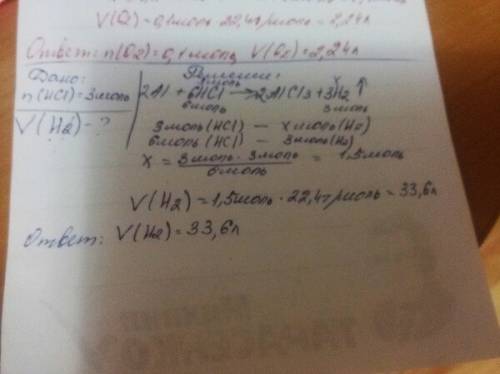 V(O₂) = 0,1моль · 22,4л/моль = 2,24л
Ответ: n(O₂) = 0,1моль, V(O₂) = 2,24л
Дано: Решение:
n(HCl) = 3моль 3моль x
V(H₂) - ? 2Al + 6HCl → 2AlCl₃ + 3H₂ ↑
6моль 3моль
3моль(HCl) — xмоль(H₂)
6моль(HCl) — 3моль(H₂)
x = 3моль · 3моль / 6моль = 1,5моль
V(H₂) = 1,5моль · 22,4л/моль = 33,6л
Ответ: V(H₂) = 33,6л
ТАРАСЕНКО